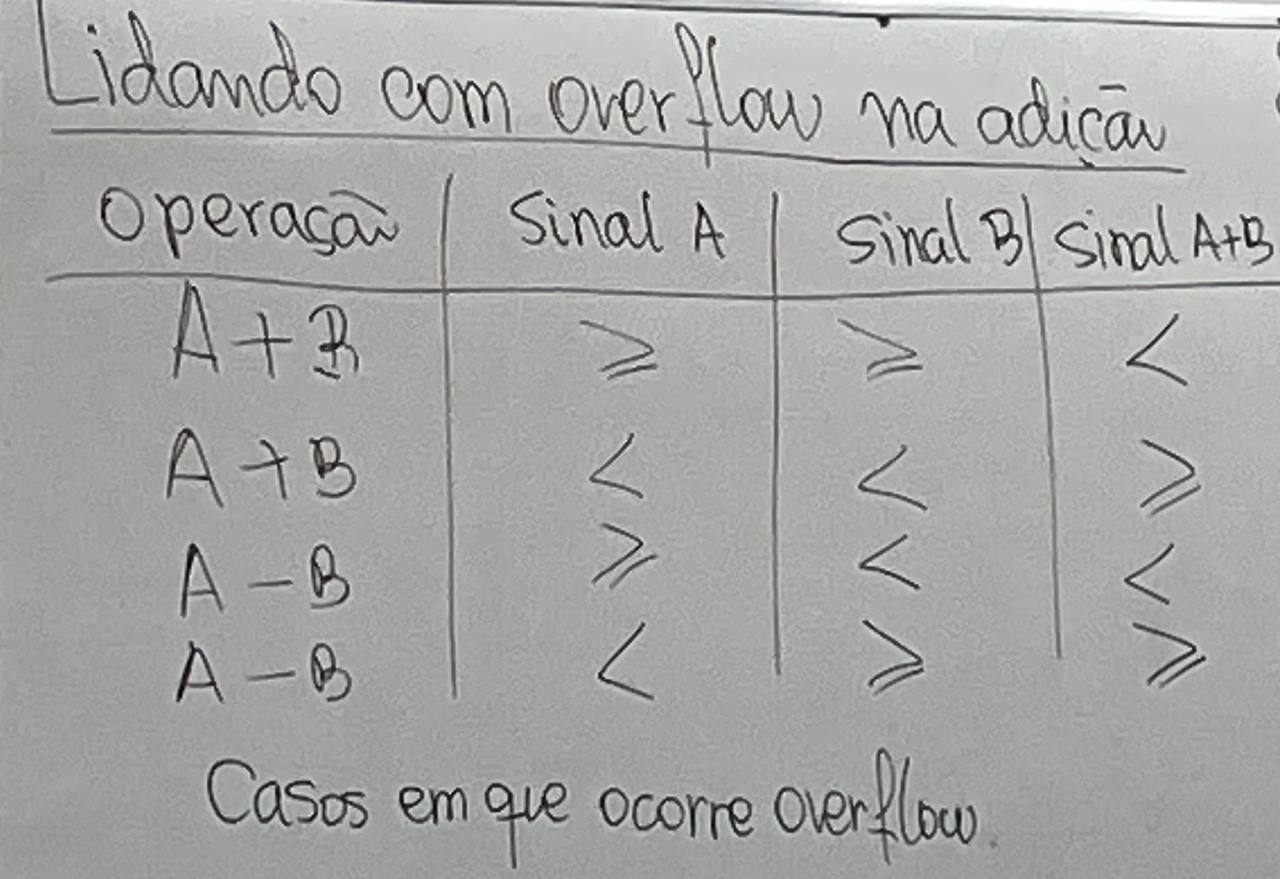 Lidando com overflow na adição
Operação Sinal A Sinal B Sinal A+B
A+B ⩾ ⩾ <
A+B < < ⩾
A-B ⩾ < <
A-B < ⩾ ⩾
Casos em que ocorre overflow.